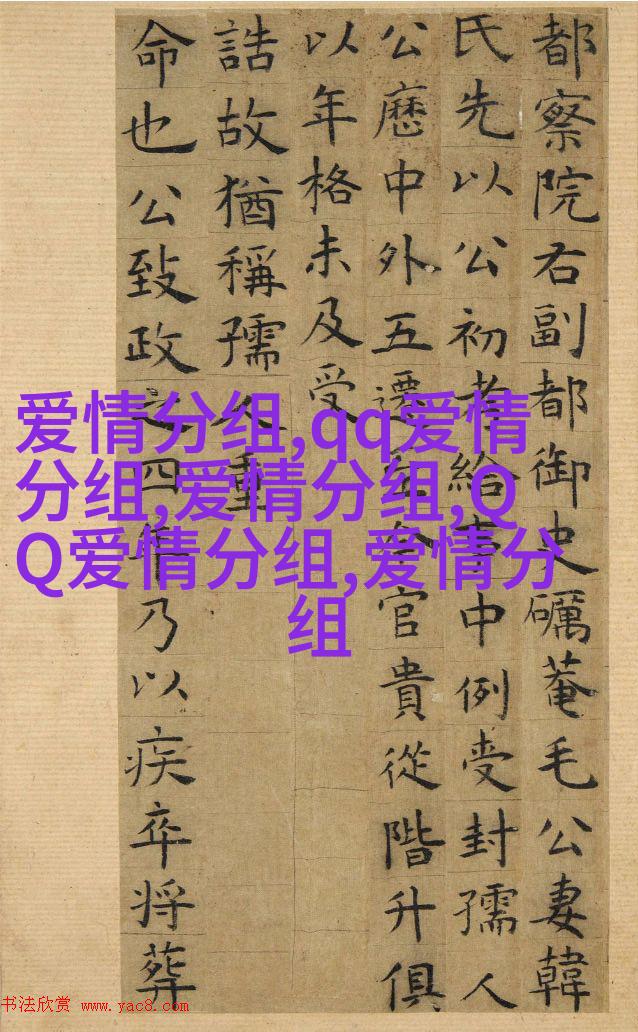 都察院右副都御史礪菴毛公妻韓
氏先以公初考給事中例受封孺人
公歷中外五遷至今官貴從階升俱
以年格未及受
誥故猶稱孺人重
命也公致政之四年乃以疾卒将葬
爱情分组,qq爱情
分组,爱情分组,Q
Q爱情分组,爱情分
组
书法欣赏 www.yac8.com